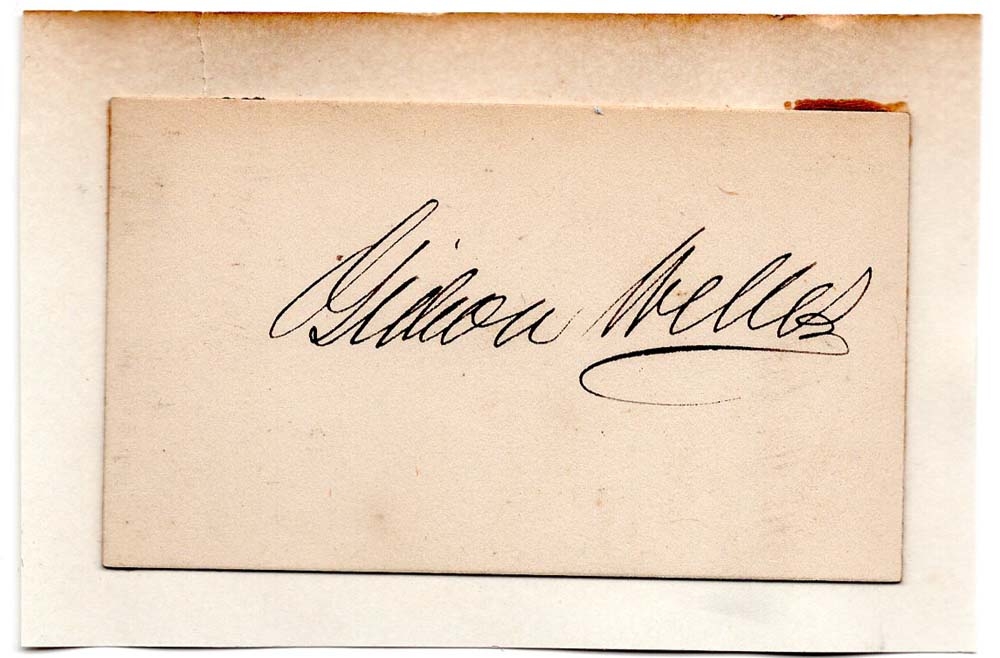 Gideon Welles